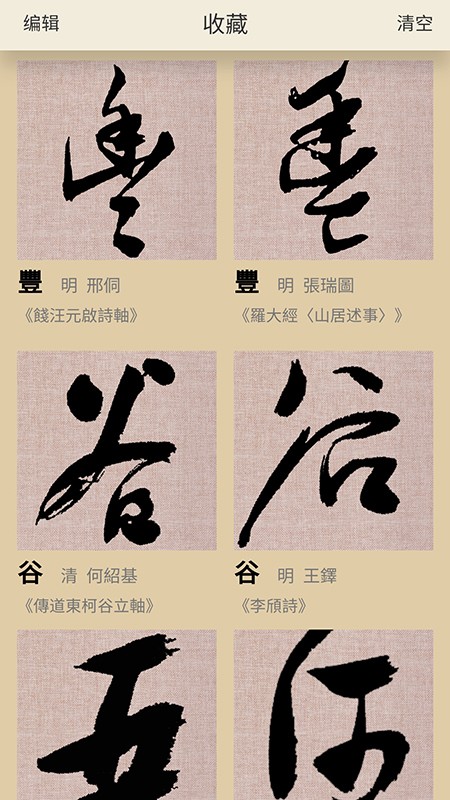 编辑 收藏 清空
豐 豐
豐 明 邢侗 豐 明 張瑞圖
《餞汪元啟詩軸》 《羅大經〈山居述事〉》
谷 谷
谷 清 何紹基 谷 明 王鐸
《傳道東柯谷立軸》 《李頎詩》
五